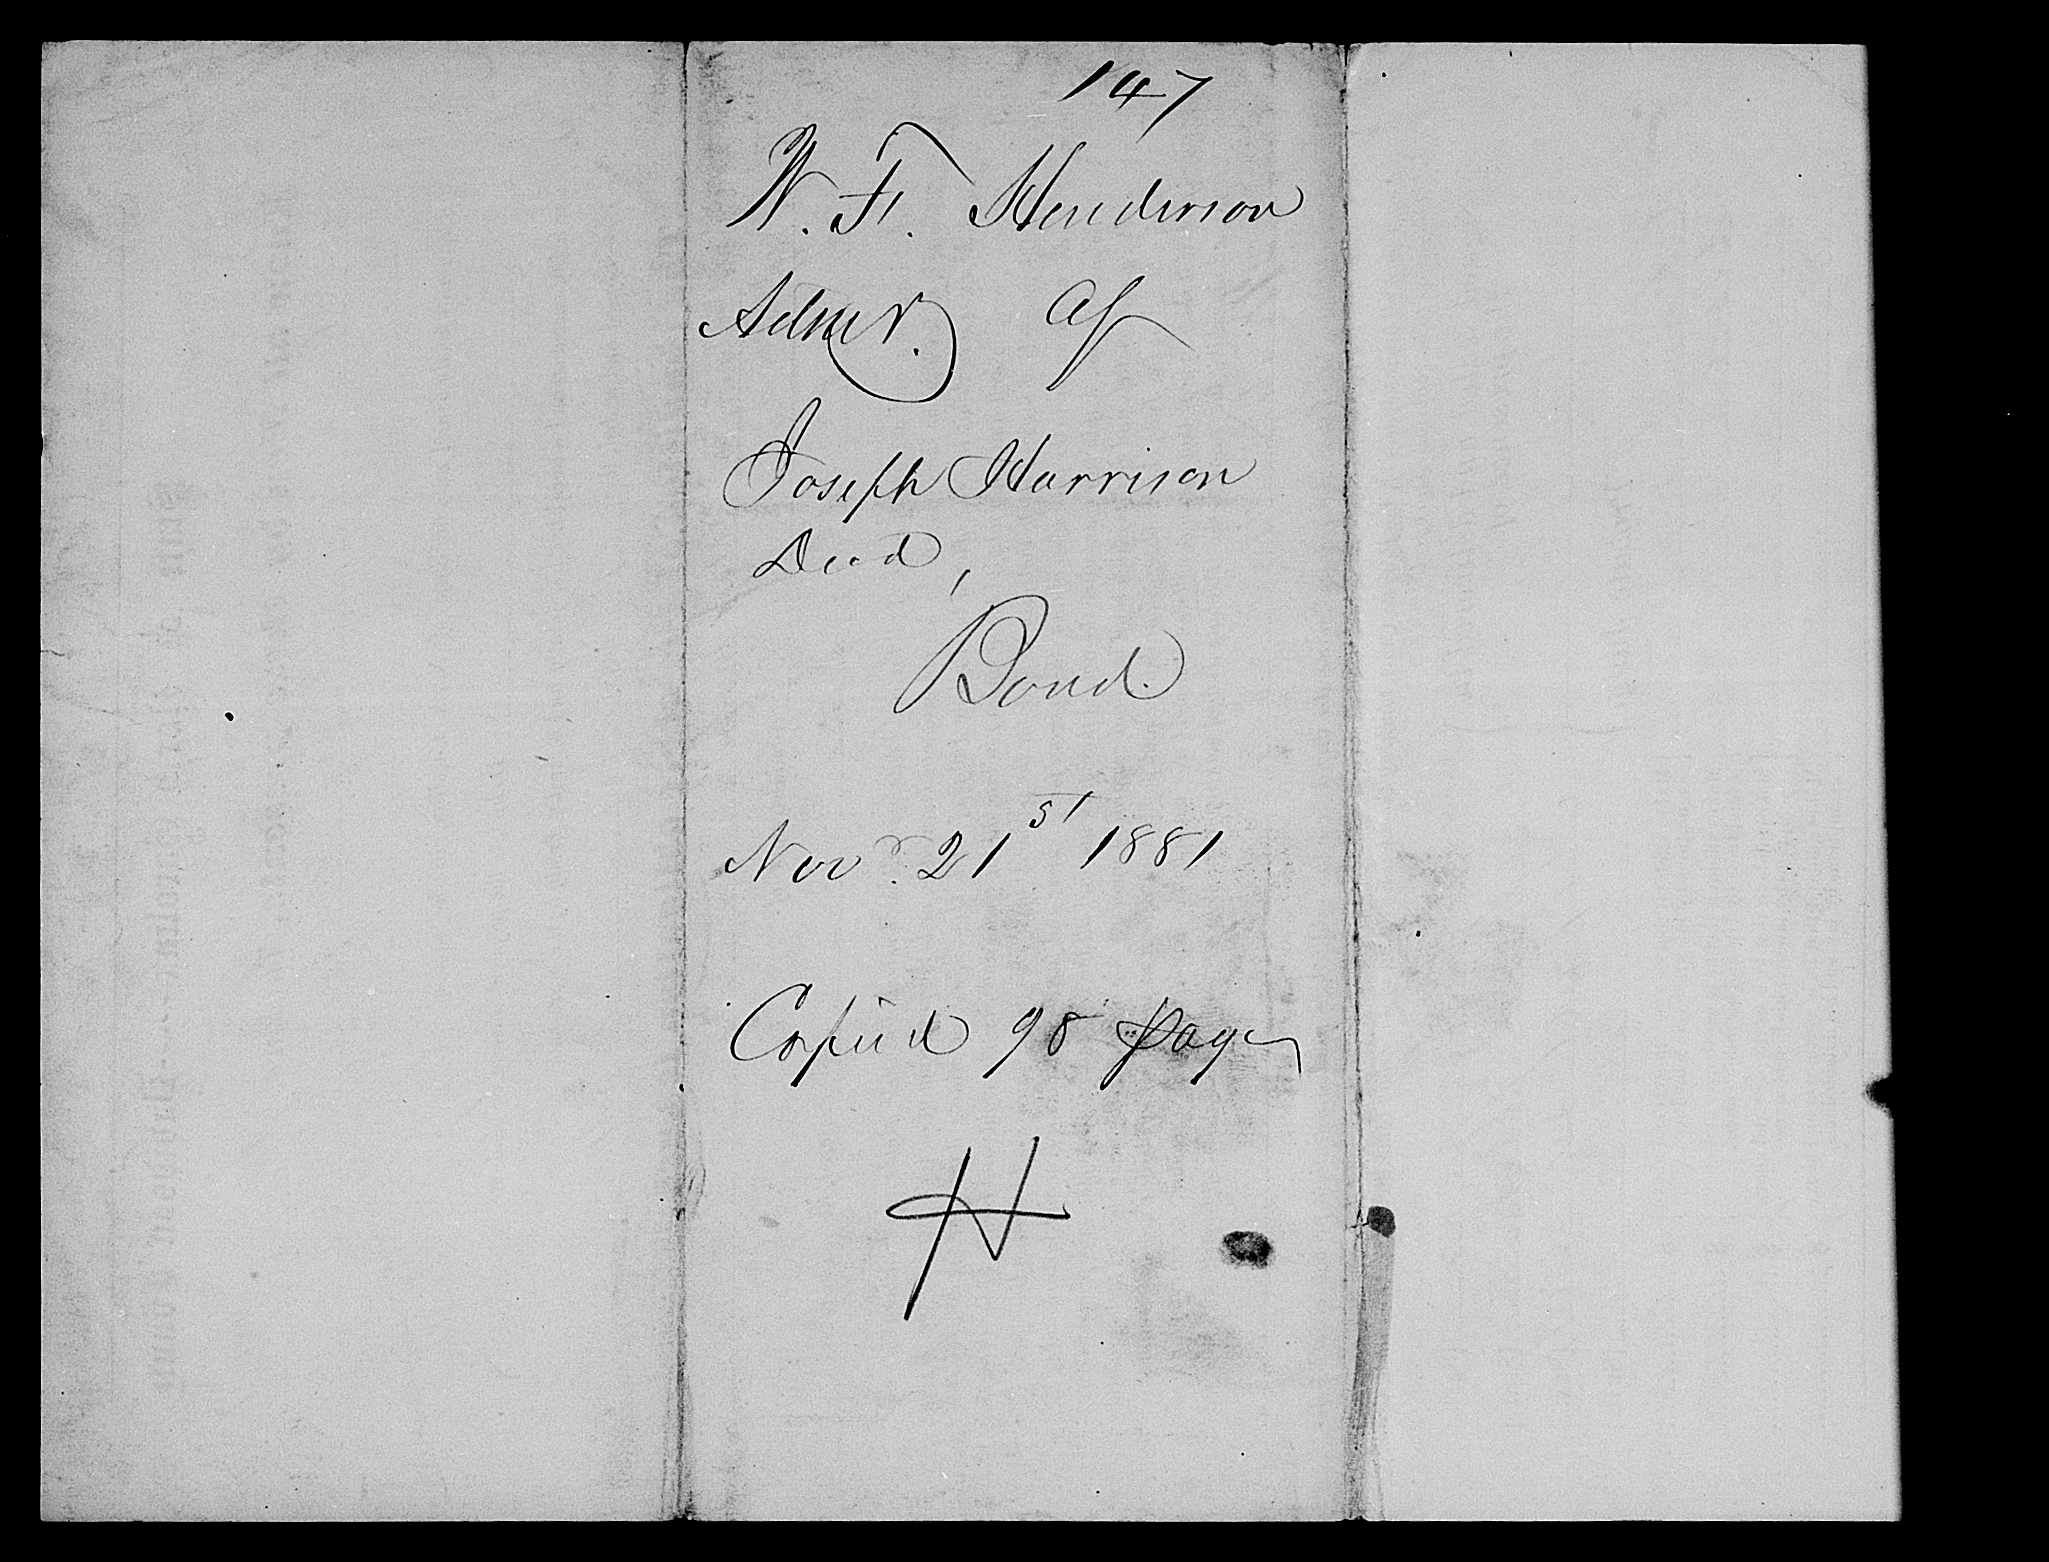 147
W. F. Henderson
Admr. of
Joseph Harrison
Decd,
Bond.
Novr. 21st 1881
Copied 98 Page
H